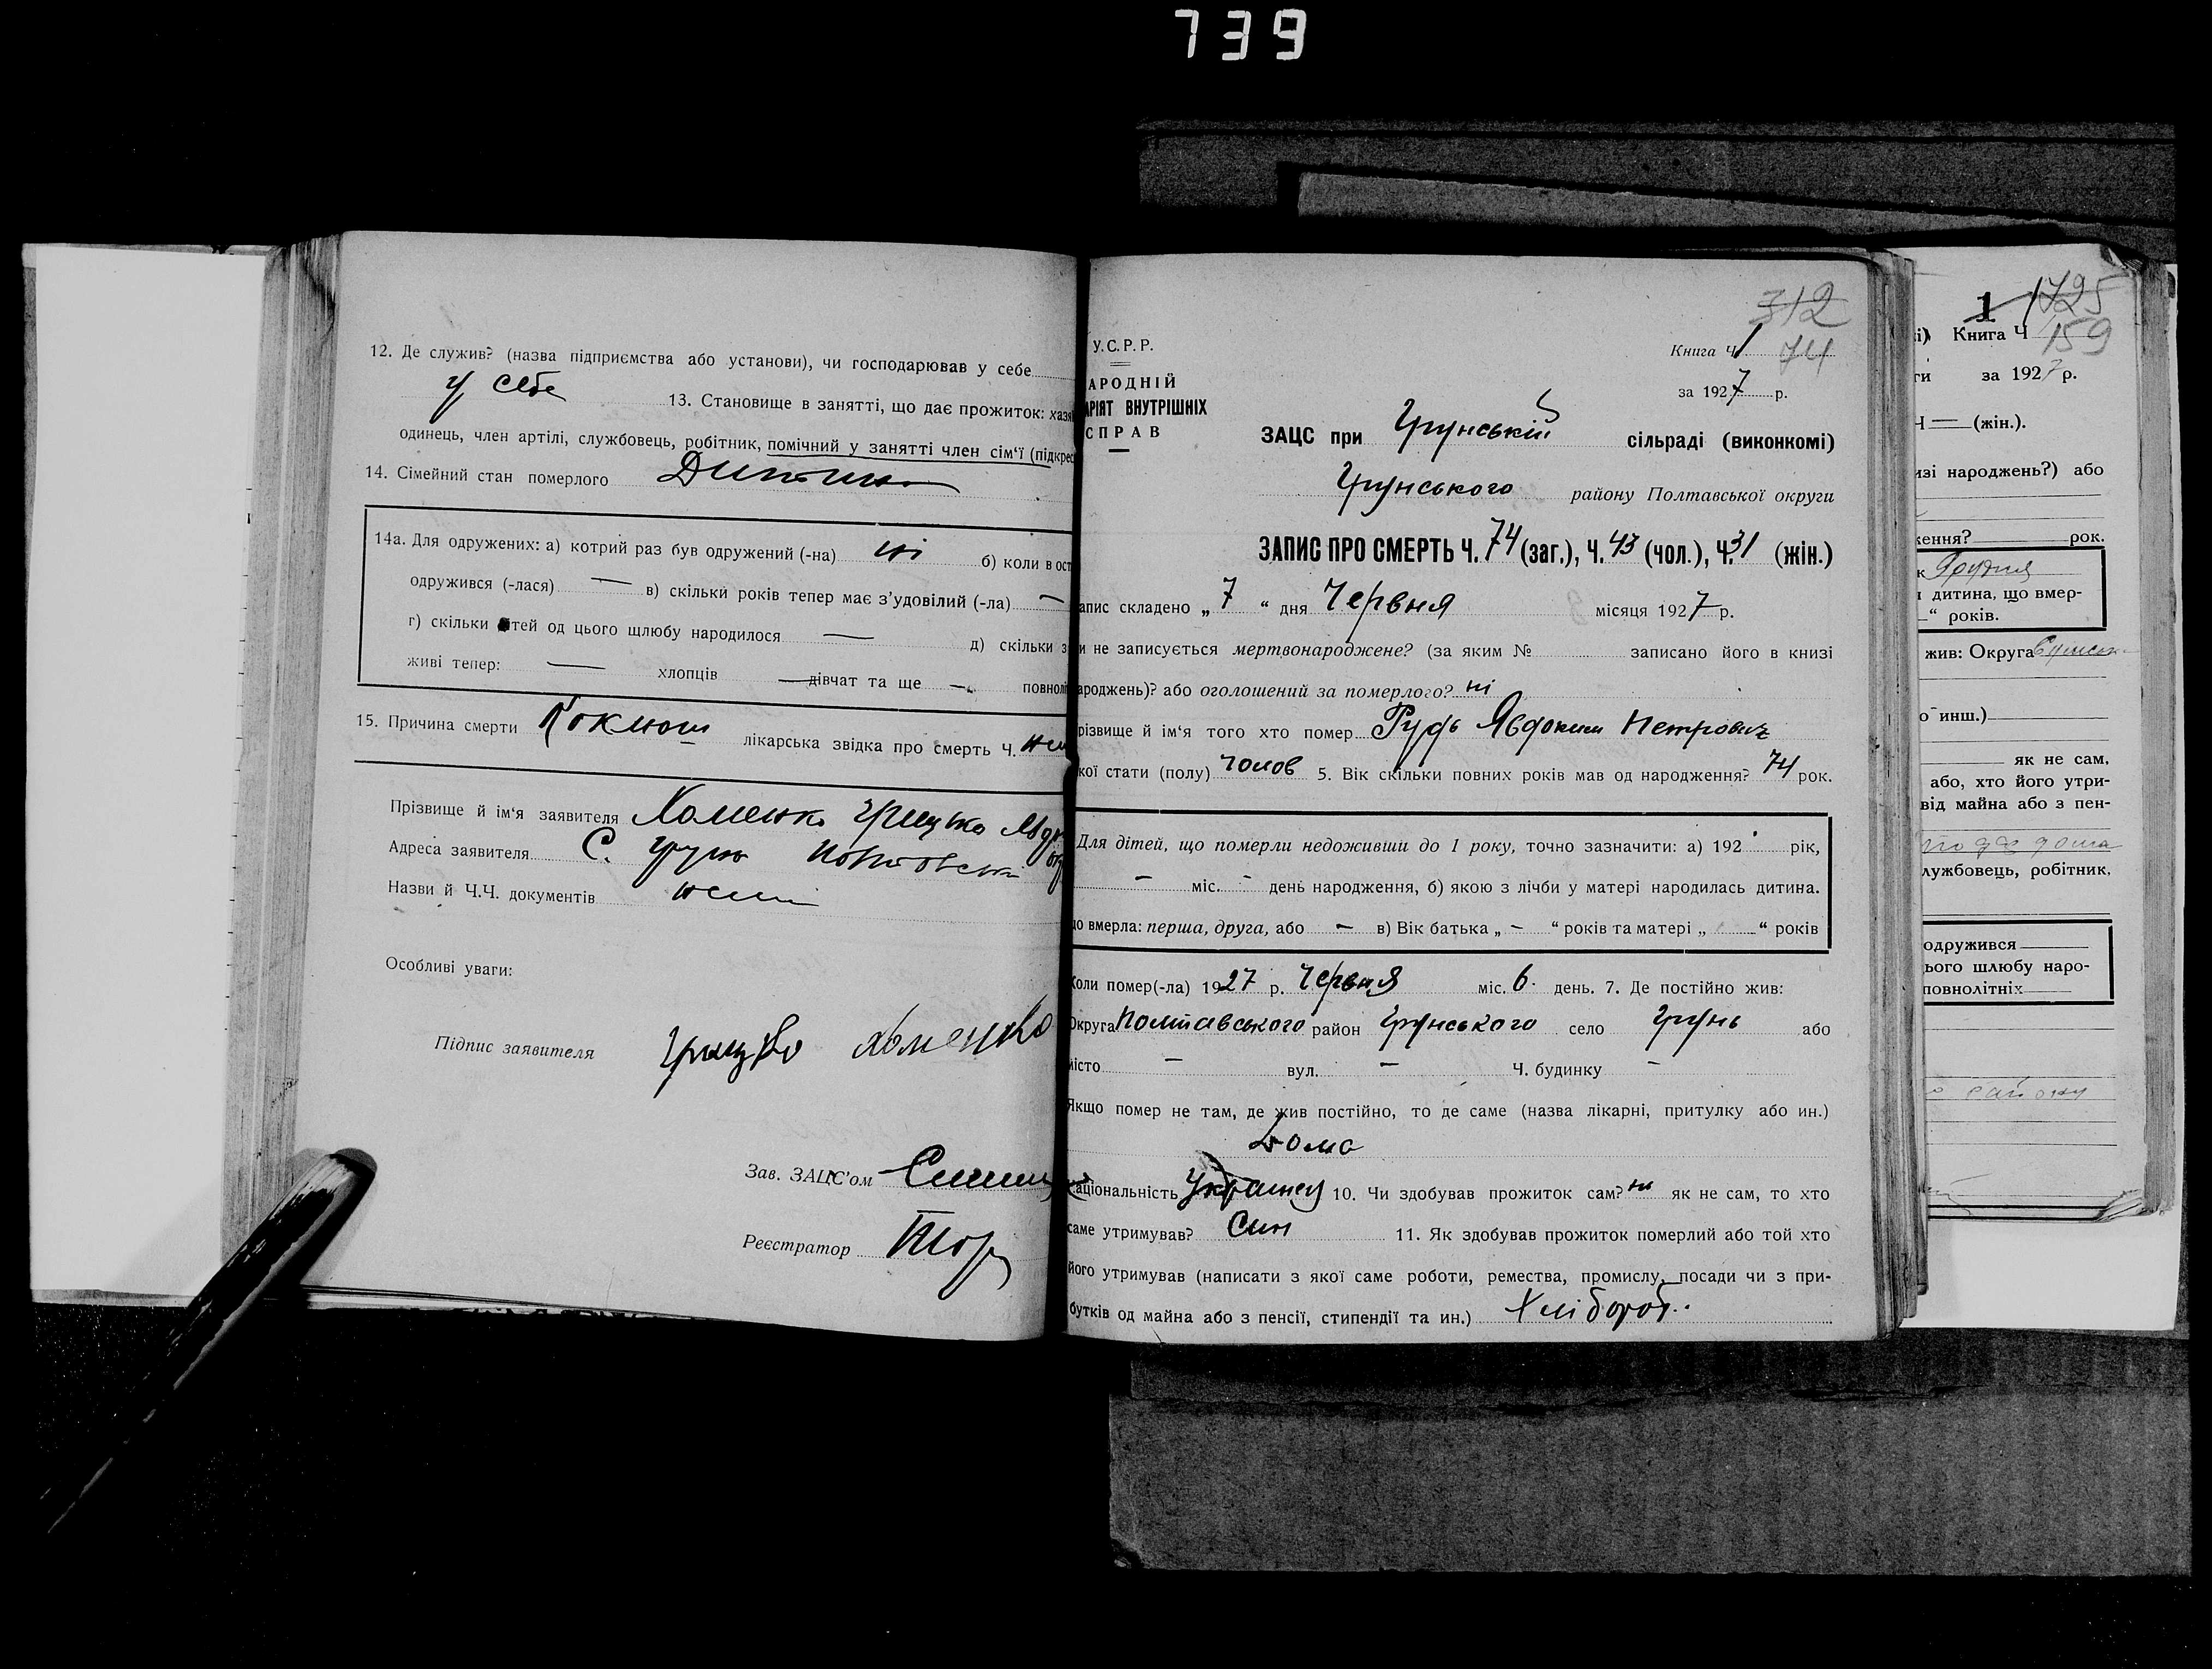 739
12. Де служив? (назва підприємства або установи), чи господарював у себе
у себе 13. Становище в занятті, що дає прожиток: хазя
одинець, член артілі, службовець, робітник, помічний у занятті член сім'ї (підкрес
14. Сімейний стан померлого Дитина
14а. Для одружених: а) котрий раз був одружений (-на) ні б) коли в ост
одружився (-лася) — в) скільки років тепер має з'удовілий (-ла) —
г) скільки тей од цього щлюбу народилося — д) скільки з
живі тепер: — хлопців — дівчат та ще — повноліт
15. Причина смерти Коклюш лікарська звідка про смерть Ч.
Прізвище й ім'я заявителя Хоменко Грицько
Адреса заявителя С. Грунь
Назви й Ч.Ч. документів
Особливі уваги:
Підпис заявителя Грицько Хоменко
Зав. ЗАЦС'ом
Реєстратор
312
У.С.Р.Р.
Книга Ч. 1 74
АРОДНІЙ
АРІЯТ ВНУТРІШНІХ
СПРАВ
за 1927 р.
ЗАЦС при Грунській сільраді (виконкомі)
Грунського району Полтавської округи
ЗАПИС ПРО СМЕРТЬ Ч. 74 (заг.), Ч. 43 (чол.), Ч. 31 (жін.)
апис складено „ 7 “ дня Червня місяця 1927 р.
и не записується мертвонароджене? (за яким № записано його в книзі
ароджень)? або оголошений за померлого? ні
різвище й ім'я того хто помер Рудь Явдоким Петрович
кої стати (полу) чолов 5. Вік скільки повних років мав од народження? 74 рок.
Для дітей, що померли недоживши до 1 року, точно зазначити: а) 192 рік,
— міс. - день народження, б) якою з лічби у матері народилась дитина.
що вмерла: перша, друга, або — в) Вік батька „ — “ років та матері „ “ років
Коли помер(-ла) 1927 р. Червня міс. 6 день. 7. Де постійно жив:
Округа Полтавського район Грунського село Грунь або
місто — вул. — Ч. будинку —
Якщо помер не там, де жив постійно, то де саме (назва лікарні, притулку або ин.)
Дома
національність 10. Чи здобував прожиток сам? ні як не сам, то хто
саме утримував? Син 11. Як здобував прожиток померлий або той хто
його утримував (написати з якої саме роботи, ремества, промислу, посади чи з при-
бутків од майна або з пенсії, стипендії та ин.) Хлібороб.
1 1725
і) Книга Ч 159
ги за 1927 р.
Ч — (жін.).
изі народжень?) або
ження? рок.
к Грудня
дитина, що вмер-
— “ років.
жив: Округа
о инш.)
як не сам,
або, хто його утри-
від майна або з пен-
лужбовець, робітник,
одружився
ього шлюбу наро-
повнолітніх
району